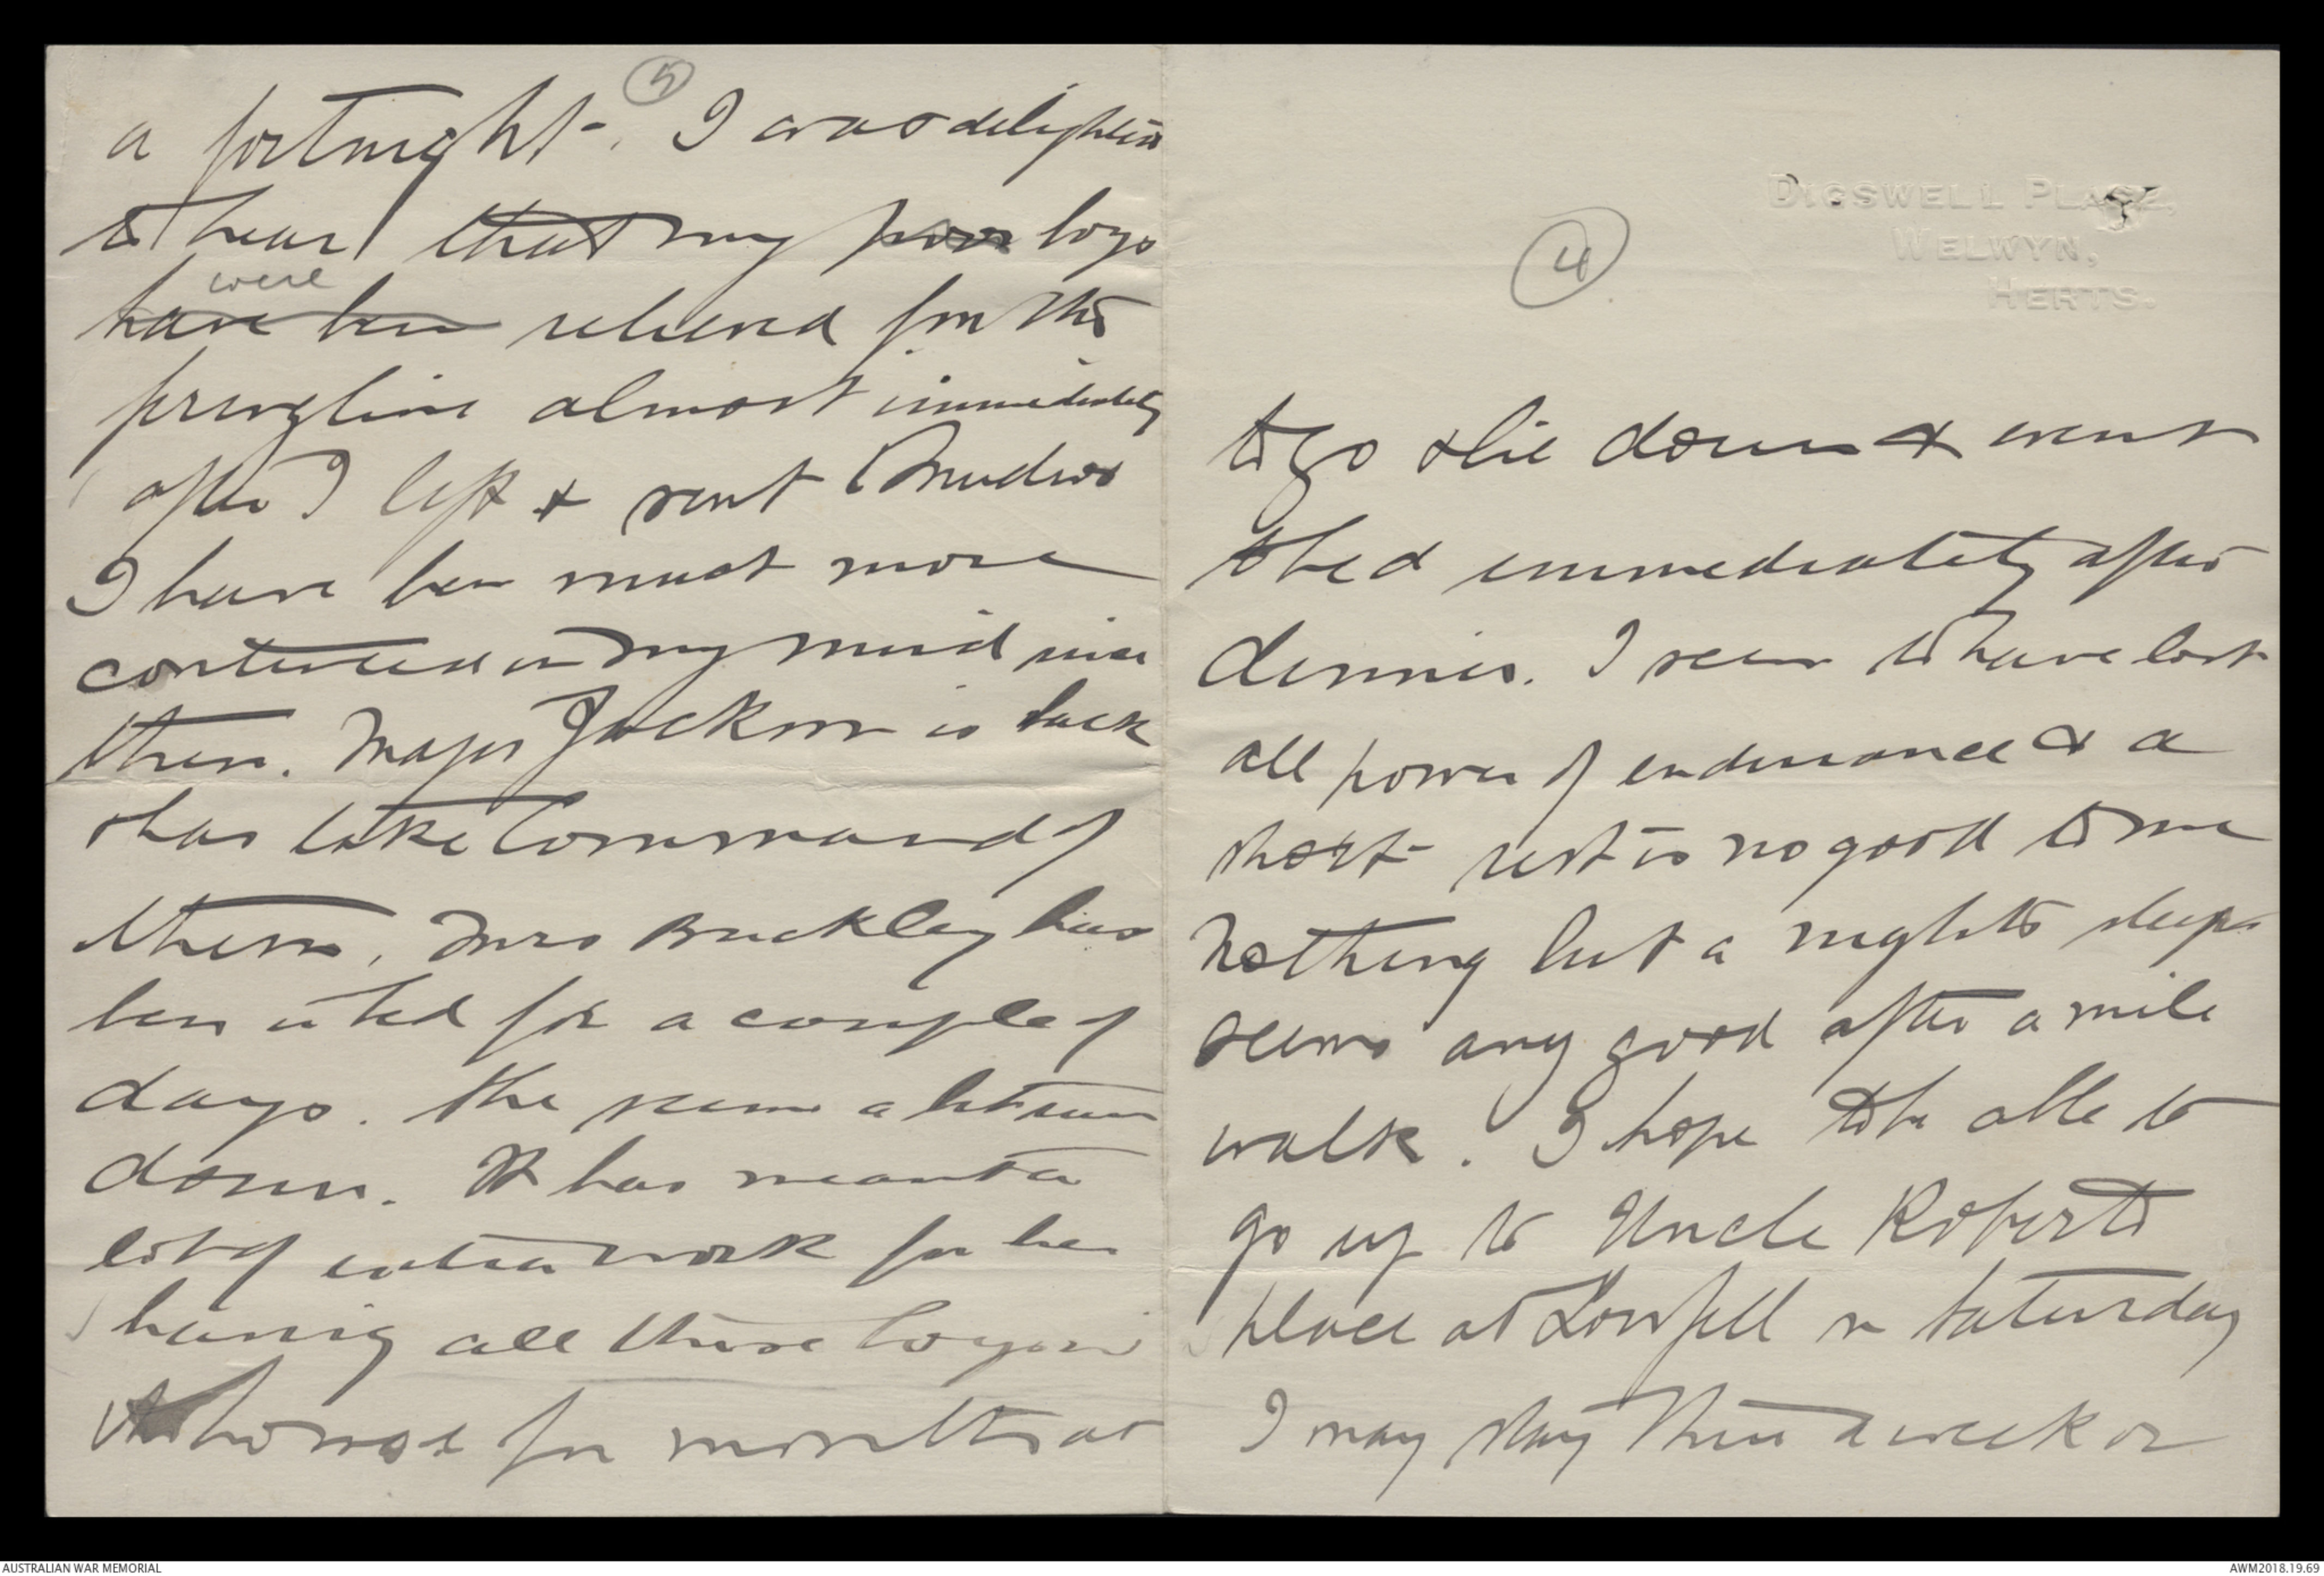 ④
DIGSWELL PLACE,
WELWYN,
HERTS.
to go & lie down & went
to bed immediately after
dinner. I seem to have lost
all power of endurance & a
short rest is no good to me
Nothing but a nights sleep
seems any good after a mile
walk. I hope to be able to
go up to Uncle Roberts
place at Lowfell on Saturday
I may stay there a week or
⑤
a fortnight. I was delighted
to hear that my poor boys
were
have been relieved from the
firing line almost immediately
after I left & sent to Mudros
I have been much more
contented in my mind since
then. Major Jackson is back
& has taken Command of
them. Mrs Buckley has
been in bed for a couple of
days. She seems a bit run
down. It has meant a
lot of extra work for her
having all these boys in
the house for months at
AUSTRALIAN WAR MEMORIAL
AWM2018.19.69